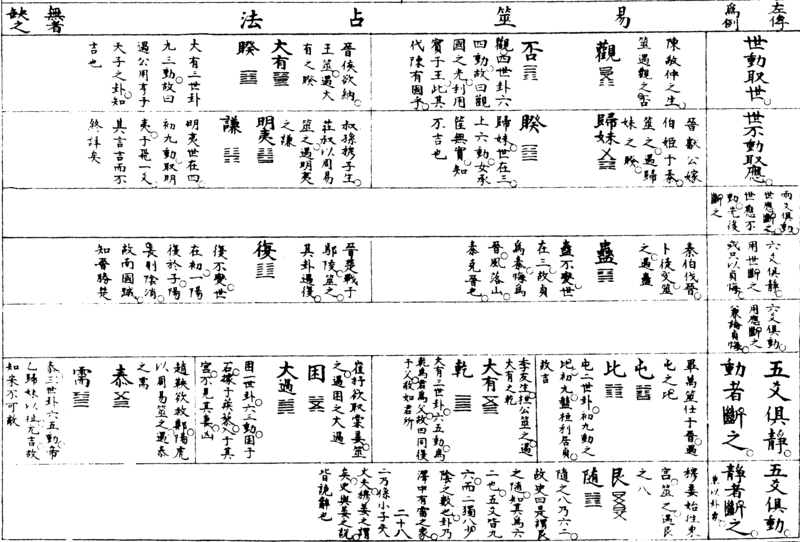 左傳
為例
易筮占法
無者
缺之
世動取世。
陳敬仲之生
筮遇觀之否
觀
否
觀四世卦六
四動故曰觀
國之光利用
賓于王此其
代陳有國乎
晉侯欲納
王筮遇大
有之睽
大有
睽
大有三世卦
九三動故曰
遇公用亨于
天子之卦知
吉也
世不動取應。
晉獻公嫁
伯姬于秦
筮之遇歸
妹之睽
歸妹
睽
歸妹世在三
上六動女承
筐無實知
不吉也
叔孫穆子生
莊叔以周易
筮之遇明夷
之謙
明夷
謙
明夷世在四
初九動取明
夷于飛一爻
其言吉而不
終詳矣
兩爻俱動
世應斷之
世應不
動先後
斷之
六爻俱靜
用世斷之
或只以貞悔
秦伯伐晉
卜徒父筮
之遇蠱
蠱
蠱不變世
在三故貞
為秦悔為
晉風落山
秦克晉也
晉楚戰于
鄢陵筮之
其卦遇復
復
復不變世
在初一陽
復於子陽
長則陰消
故南國蹙
知晉勝楚
六爻俱動
用應斷之
兼論貞悔
五爻俱靜。
動者斷之。
畢萬筮仕于晉遇
屯之比
屯
比
屯二世卦初九動之
比初九盤桓利居貞
故吉
季友生桓公筮之遇
大有之乾
大有
乾
大有三世卦六五動為
乾為君為父故曰同復
于父敬如君所
崔杼欲取棠姜筮
之遇困之大過
困
大過
困一世卦六三動困于
石據于蒺藜入于其
宮不見其妻凶
趙鞅欲救鄭陽虎
以周易筮之遇泰
之需
泰
需
泰三世卦六五動帝
乙歸妹以祉元吉故
知宋不可敵
五爻俱動
靜者斷之。
穆姜始往東
宮筮之遇艮
之八
艮
隨
隨之八乃六二
故史曰是謂艮
之隨知其為六
二也五爻皆九
六而二獨八少
陰之數也卦乃
澤中有雷之象
二十八
二乃係小子失
丈夫穆姜之謂
矣史與姜之說
皆詭辭也